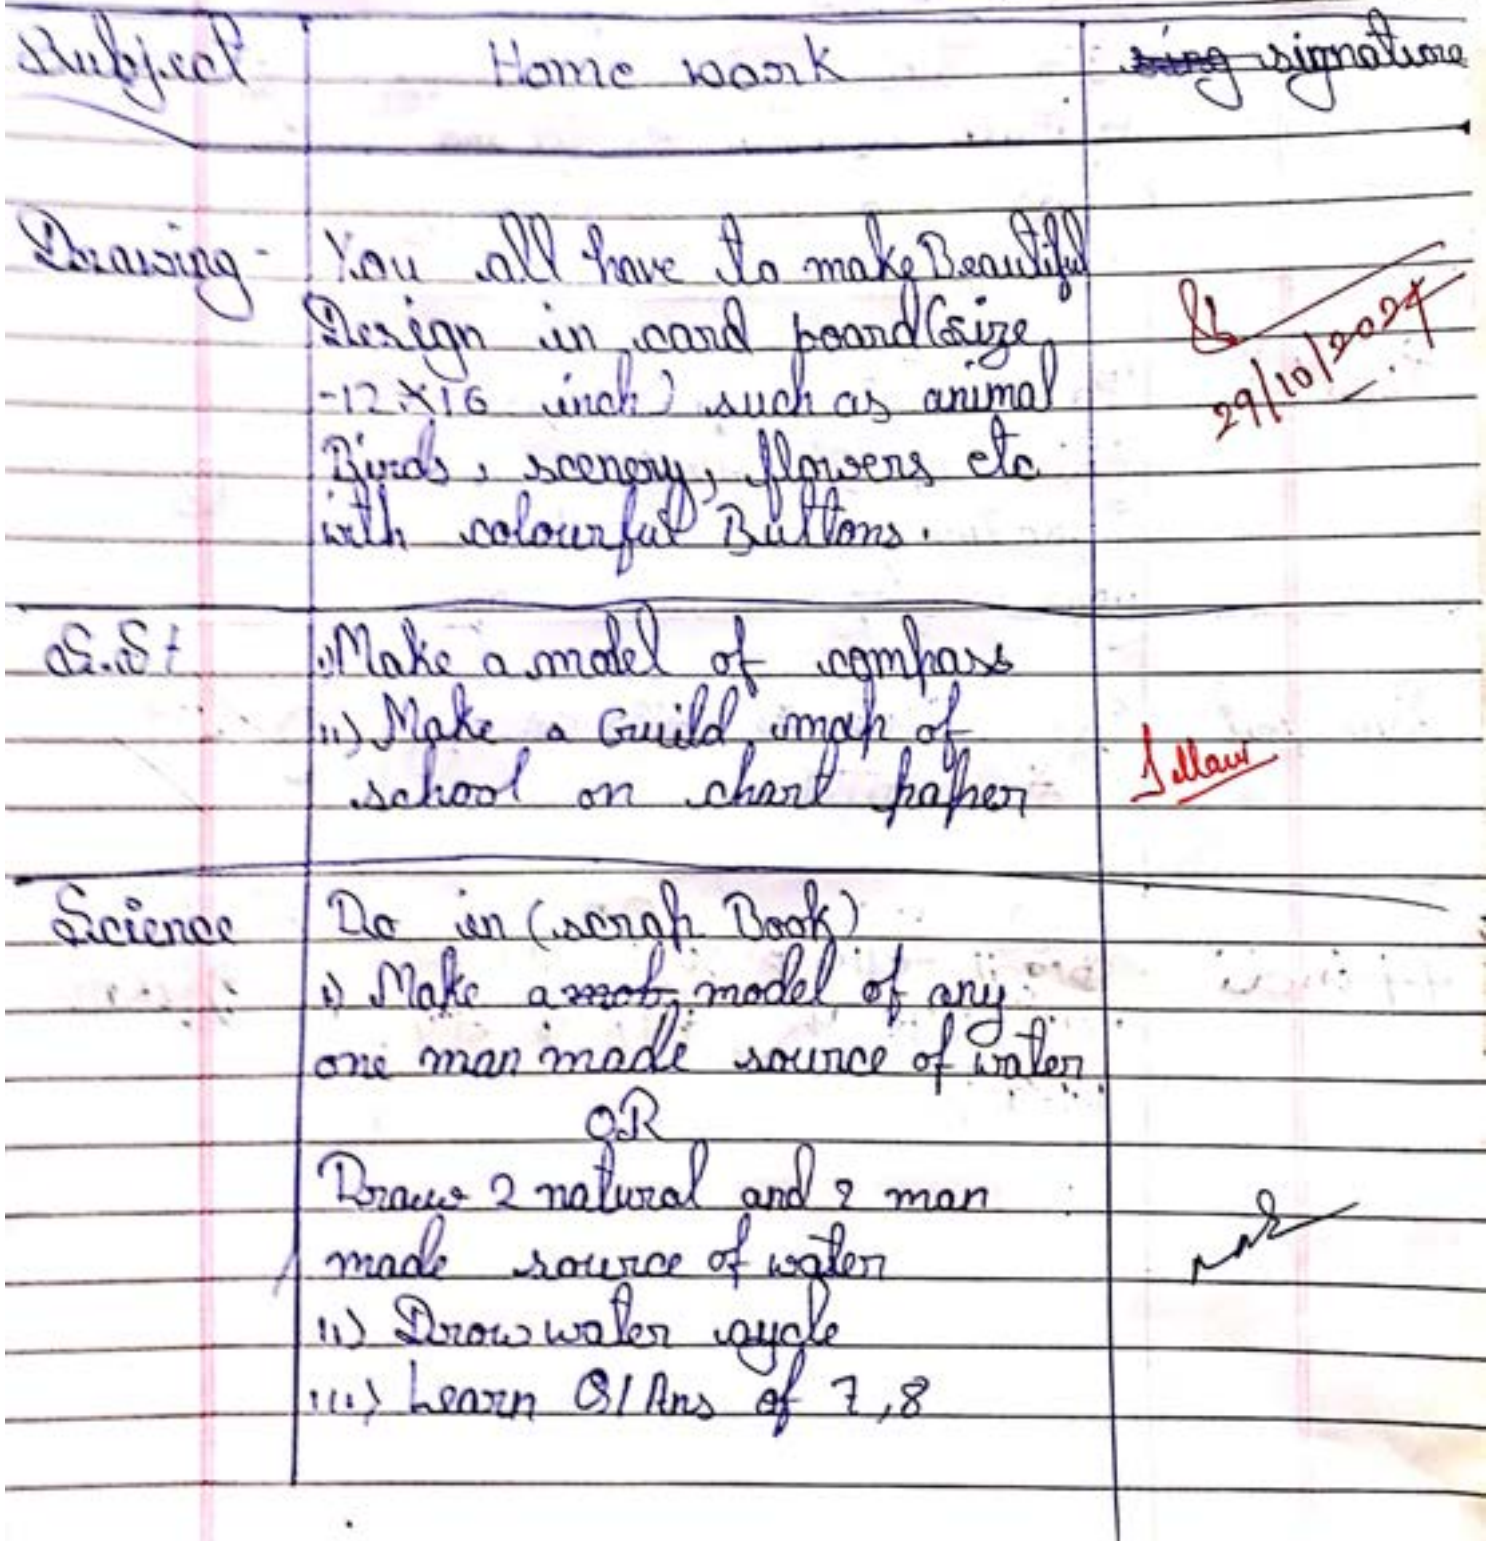 Subject Home work sing signature
Drawing - You all have to make Beautiful
Design in card poard (size
-12 X 16 inch) such as animal
Birds, scenery, flowers etc
with colourful Buttons.
29/10/2024
S.St i) Make a model of compass
ii) Make a Guild map of
school on chart paper
Science Do in (scrap Book)
i) Make a mob, model of any
one man made source of water
OR
Draw 2 natural and 2 man
made source of water
ii) Drow water cycle
iii) Learn Q/Ans of 7,8